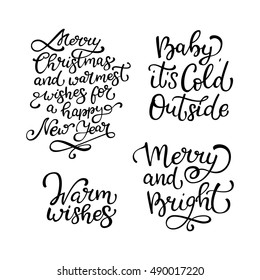 Merry
Christmas
and warmest
wishes for
a happy
New Year
Baby,
it's Cold
Outside
Warm
wishes
Merry
and
Bright
shutterstock.com · 490017220